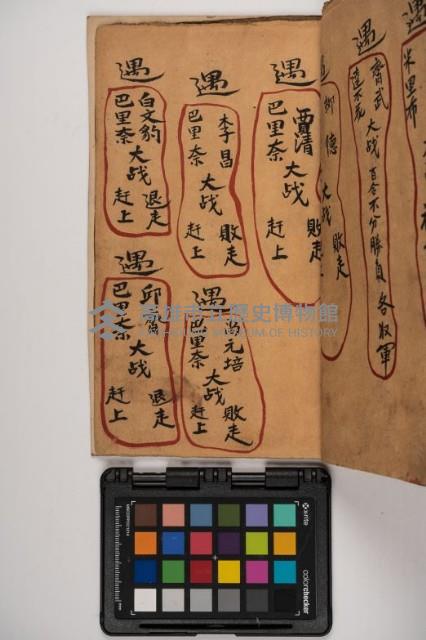 遇
米里布
遇
齊武
大战
百合不分勝負
各收軍
德
大战
敗走
遇
賈清
巴里奈
大战
敗走
赶上
遇
李昌
巴里奈
大战
敗走
赶上
遇
白文豹
巴里奈
大战
退走
赶上
遇
元培
巴里奈
大战
敗走
赶上
遇
邱
巴里奈
大战
退走
赶上
高雄市立歷史博物館
KAOHSIUNG MUSEUM OF HISTORY
x-rite
colorchecker